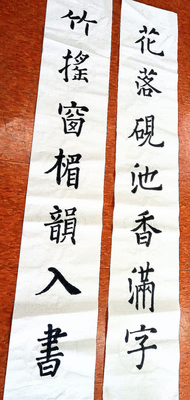 花落硯池香滿字
竹搖窗楣韻入書